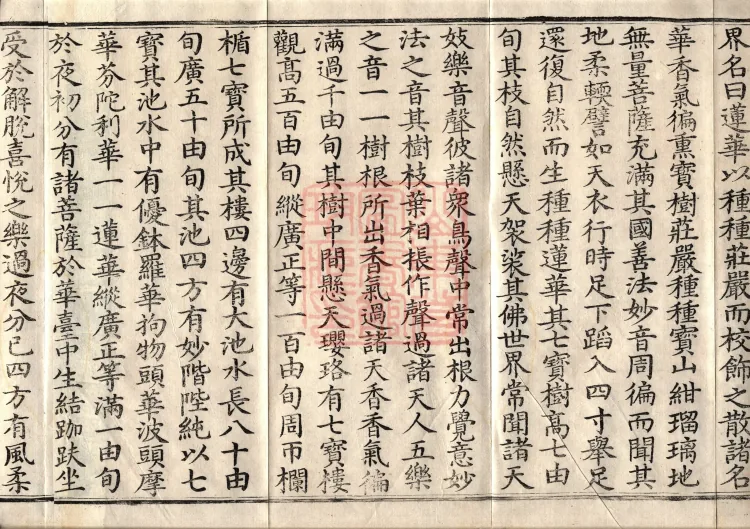 界名曰蓮華以種種莊嚴而校飾之散諸名
華香氣徧熏寶樹莊嚴種種寶山紺瑠璃地
無量菩薩充滿其國善法妙音周徧而聞其
地柔輭譬如天衣行時足下蹈入四寸舉足
還復自然而生種種蓮華其七寶樹高七由
旬其枝自然懸天袈裟其佛世界常聞諸天
妓樂音聲彼諸衆鳥聲中常出根力覺意妙
法之音其樹枝葉相棖作聲過諸天人五樂
之音一一樹根所出香氣過諸天香香氣徧
滿過千由旬其樹中間懸天瓔珞有七寶樓
觀高五百由旬縱廣正等一百由旬周帀欄
楯七寶所成其樓四邊有大池水長八十由
旬廣五十由旬其池四方有妙階陛純以七
寶其池水中有優鉢羅華拘物頭華波頭摩
華芬陀利華一一蓮華縱廣正等滿一由旬
於夜初分有諸菩薩於華臺中生結跏趺坐
受於解脫喜悅之樂過夜分已四方有風柔